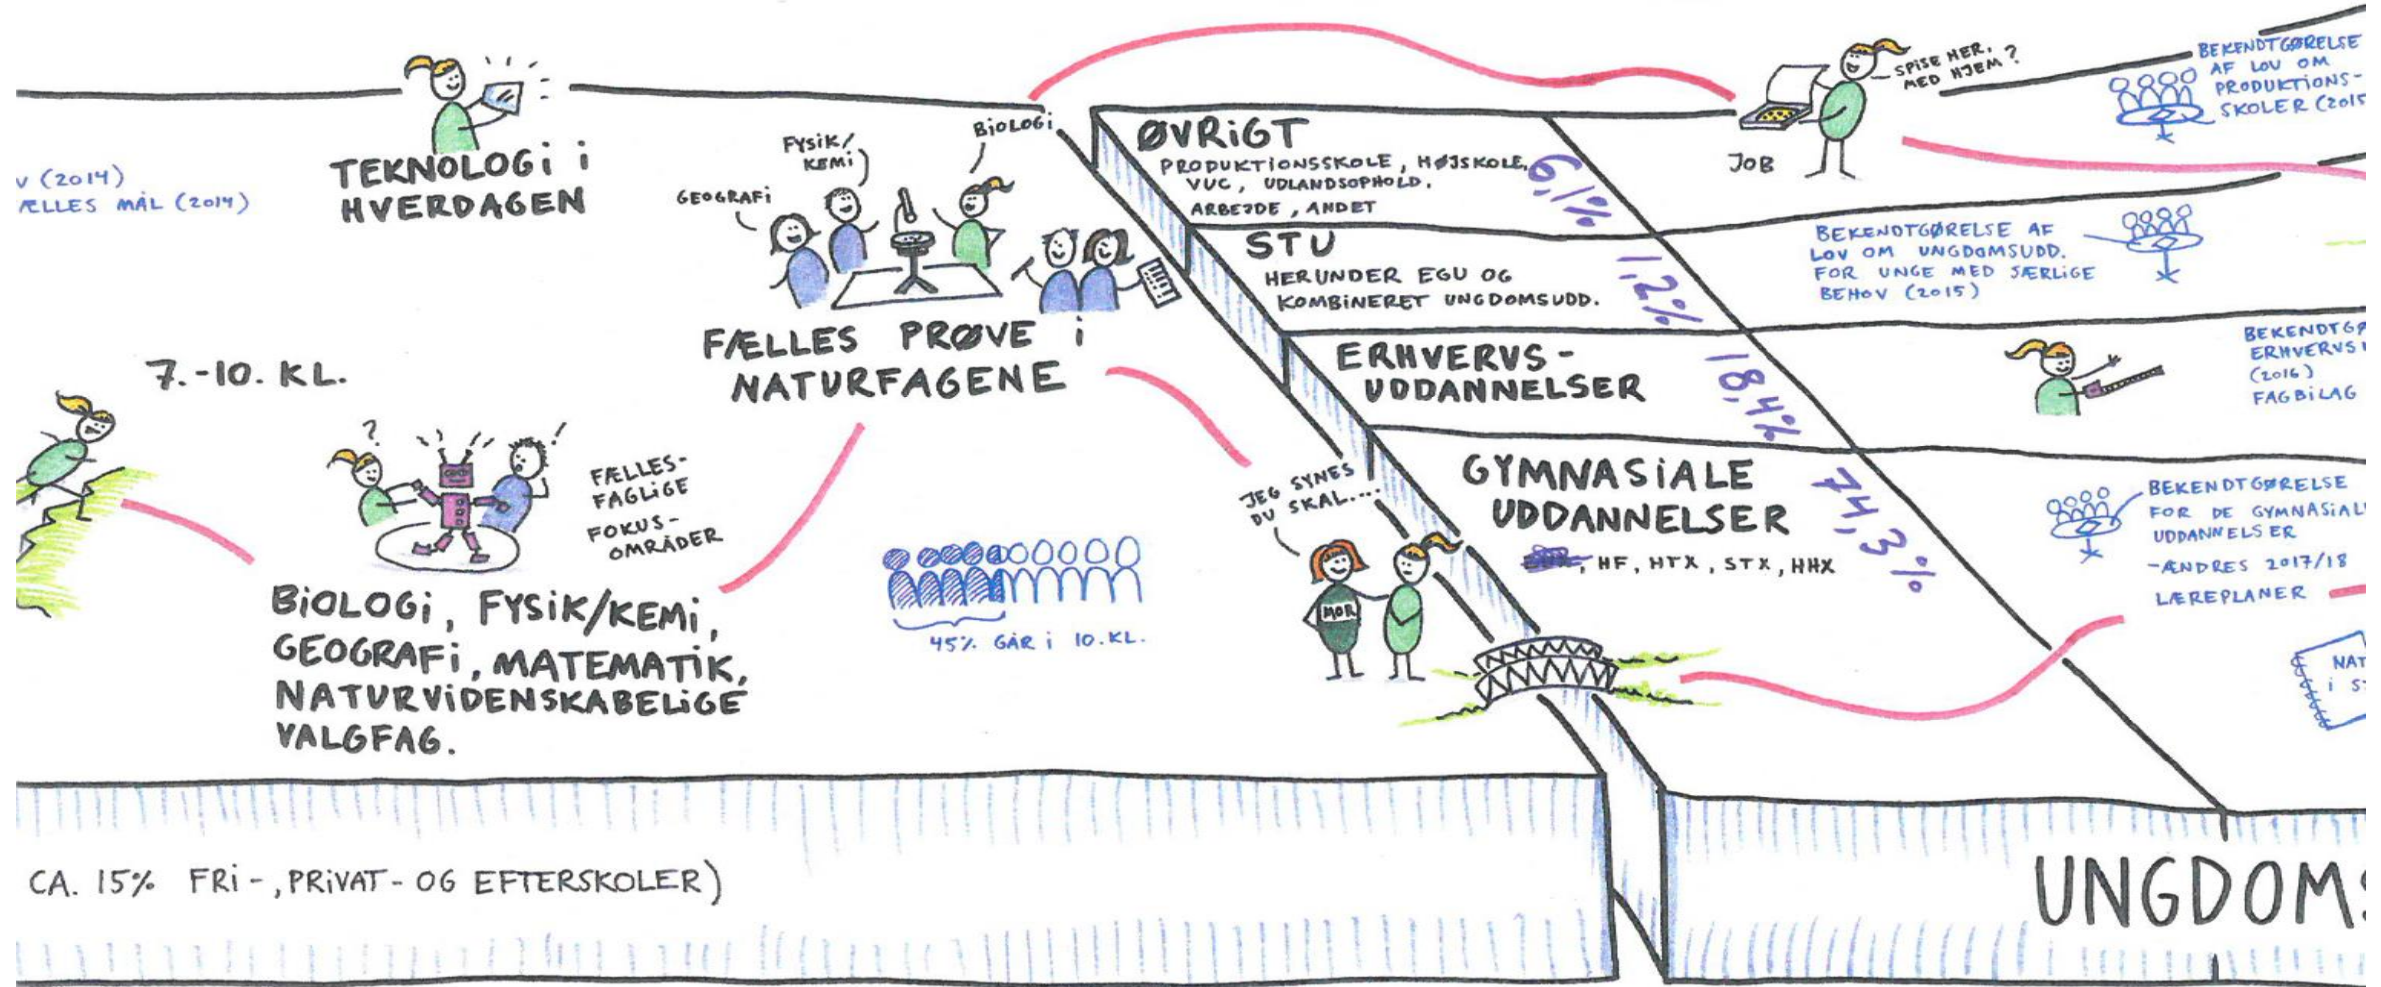 V (2014)
ÆLLES MÅL (2014)
TEKNOLOGI I
HVERDAGEN
7.-10. KL.
?
!
FÆLLES-
FAGLIGE
FOKUS-
OMRÅDER
BIOLOGI, FYSIK/KEMI,
GEOGRAFI, MATEMATIK,
NATURVIDENSKABELIGE
VALGFAG.
GEOGRAFI
FYSIK/
KEMI
BIOLOGI
FÆLLES PRØVE I
NATURFAGENE
45% GÅR I 10. KL.
JEG SYNES
DU SKAL....
MOR
ØVRIGT
PRODUKTIONSSKOLE, HØJSKOLE,
VUC, UDLANDSOPHOLD,
ARBEJDE, ANDET
6,1%
STU
HERUNDER EGU OG
KOMBINERET UNGDOMSUDD.
1,2%
ERHVERVS-
UDDANNELSER
18,4%
GYMNASIALE
UDDANNELSER
, HF, HTX, STX, HHX
74,3%
JOB
SPISE HER,
MED HJEM?
BEKENDTGØRELSE
AF LOV OM
PRODUKTIONS-
SKOLER (2015
BEKENDTGØRELSE AF
LOV OM UNGDOMSUDD.
FOR UNGE MED SÆRLIGE
BEHOV (2015)
BEKENDTGØ
ERHVERVS
(2016)
FAGBILAG
BEKENDTGØRELSE
FOR DE GYMNASIAL
UDDANNELSER
-ÆNDRES 2017/18
LÆREPLANER
NAT
I S
CA. 15% FRI-, PRIVAT- OG EFTERSKOLER)
UNGDOMS